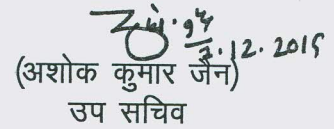 7.12.2015
(अशोक कुमार जैन)
उप सचिव